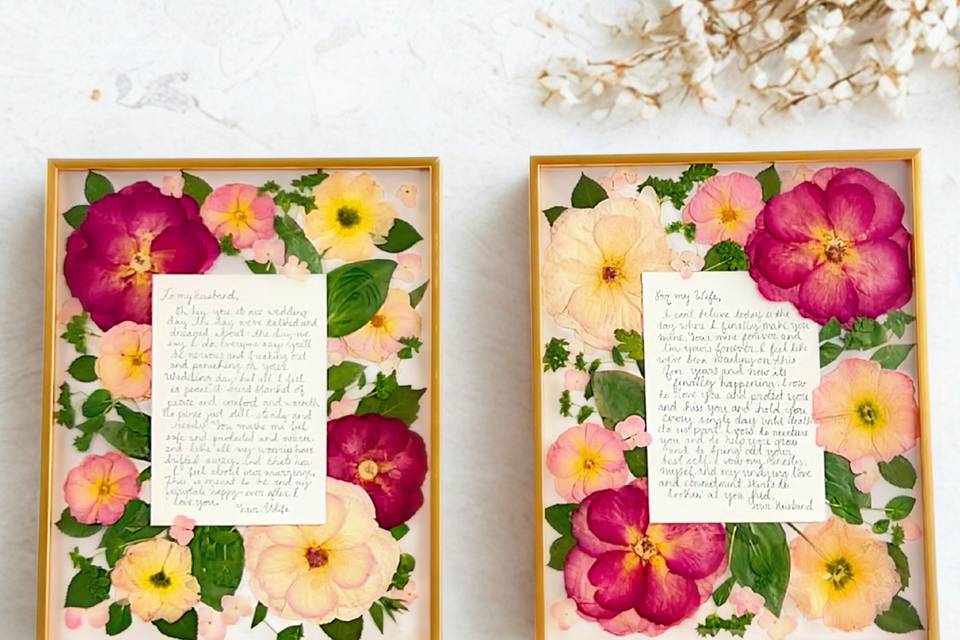 To my husband,
Oh hey you its our wedding
day. The day we've talked and
dreamed about. The day we
say I do. Everyone says you'll
be nervous and freaking out
and panicking on your
Wedding day but all I feel
is peace. A weird blanket of
peace and comfort and warmth
No panic just still-steady and
ready. You make me feel
safe and protected and warm.
and like all my worries have
drifted away. And thats how
I feel about our marriage,
This is meant to be and my
fairytale happy-ever after. I
love you.
Your Wife
For my Wife,
I cant believe today is the
day when I finally make you
mine. Your mine forever and
I'm yours forever. I feel like
we've been waiting on this
for years and now its
finally happening. I vow
to love you and protect you
and kiss you and hold you
every single day until death
do us part. I vow to nurture
you and to help you grow
and to bring out your
best self. I vow my honesty,
myself, and my undying love
and commitment. Here's to
lookin' at you kid.
Your Husband